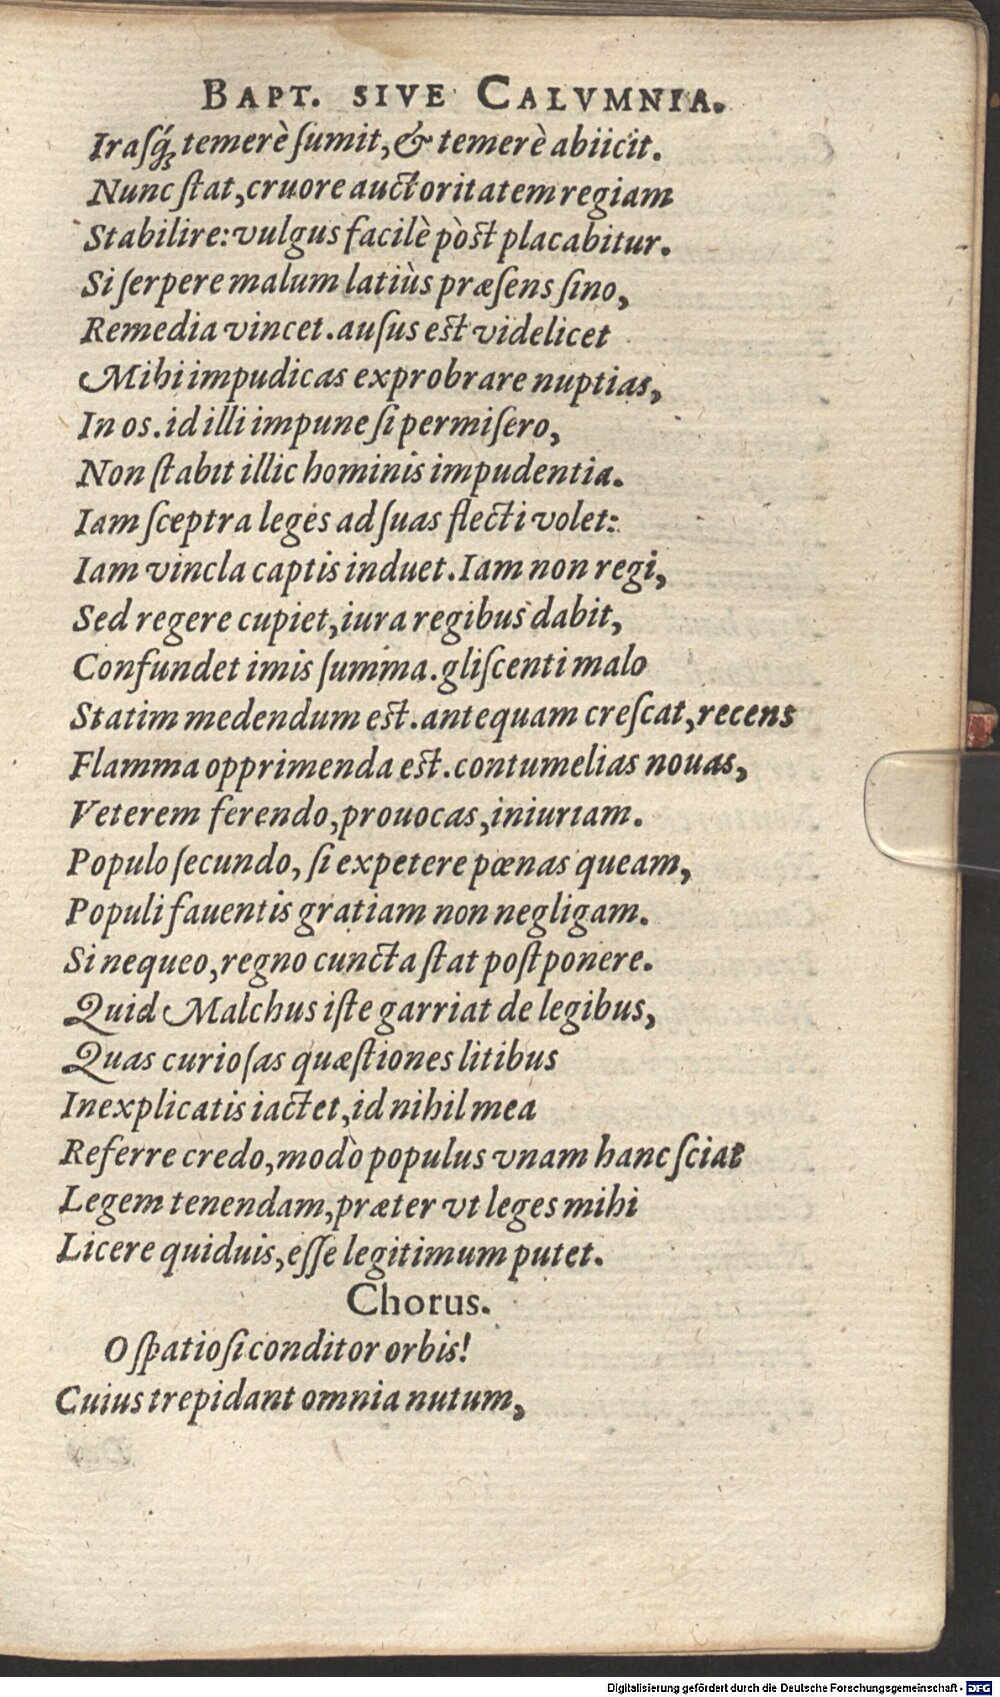 BAPT. SIVE CALVMNIA.
Iraſq́; temerè ſumit, & temerè abiicit.
Nunc ſtat, cruore auctoritatem regiam
Stabilire: vulgus facilè pòst placabitur.
Si ſerpere malum latiùs præſens ſino,
Remedia vincet. auſus est videlicet
Mihi impudicas exprobrare nuptias,
In os. id illi impune ſi permiſero,
Non ſtabit illic hominis impudentia.
Iam ſceptra leges ad ſuas flecti volet:
Iam vincla captis induet. Iam non regi,
Sed regere cupiet, iura regibus dabit,
Confundet imis ſumma. gliſcenti malo
Statim medendum est. antequam creſcat, recens
Flamma opprimenda est. contumelias nouas,
Veterem ferendo, prouocas, iniuriam.
Populo ſecundo, ſi expetere pœnas queam,
Populi fauentis gratiam non negligam.
Si nequeo, regno cuncta ſtat poſtponere.
Quid Malchus iſte garriat de legibus,
Quas curioſas quæſtiones litibus
Inexplicatis iactet, id nihil mea
Referre credo, modò populus vnam hanc ſciat
Legem tenendam, præter vt leges mihi
Licere quiduis, eſſe legitimum putet.
Chorus.
O ſpatioſi conditor orbis!
Cuius trepidant omnia nutum,
Digitalisierung gefördert durch die Deutsche Forschungsgemeinschaft - DFG